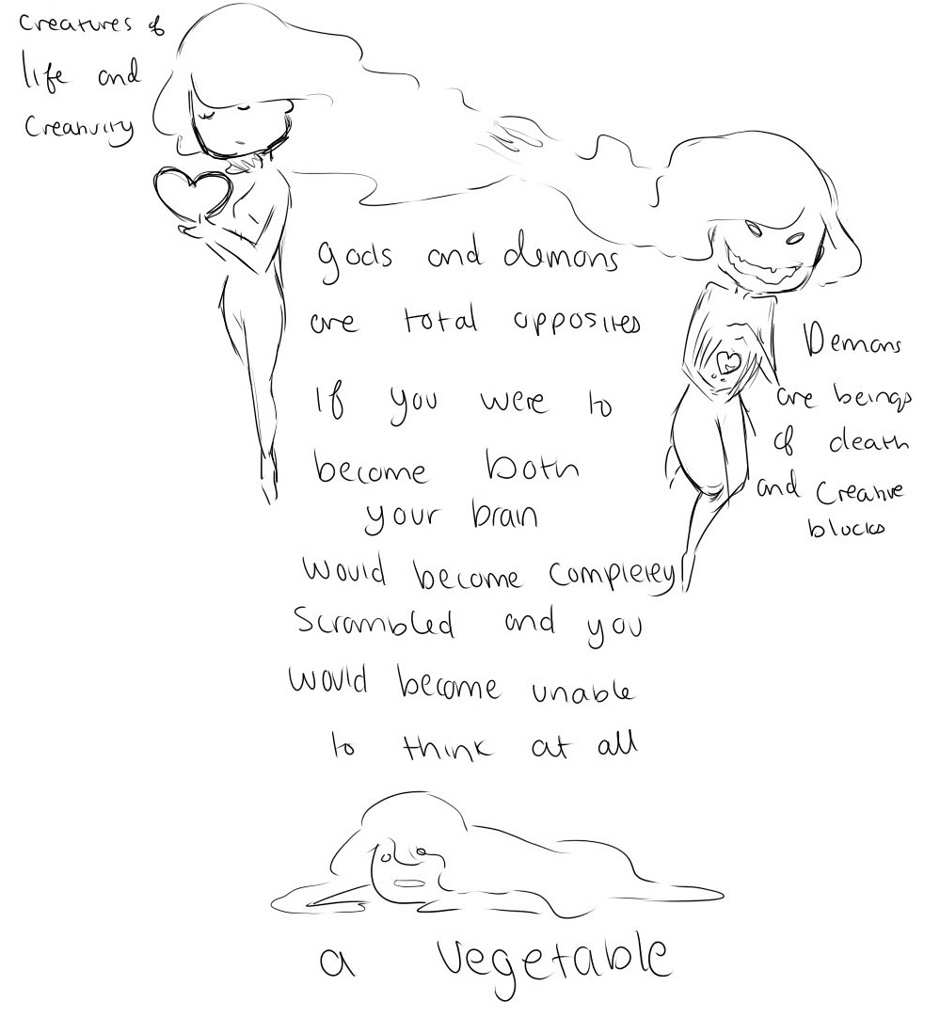 Creatures of
life and
Creativity
gods and demons
are total opposites
If you were to
become both
your brain
would become completely
Scrambled and you
would become unable
to think at all
Demons
are beings
of death
and Creative
blocks
a vegetable